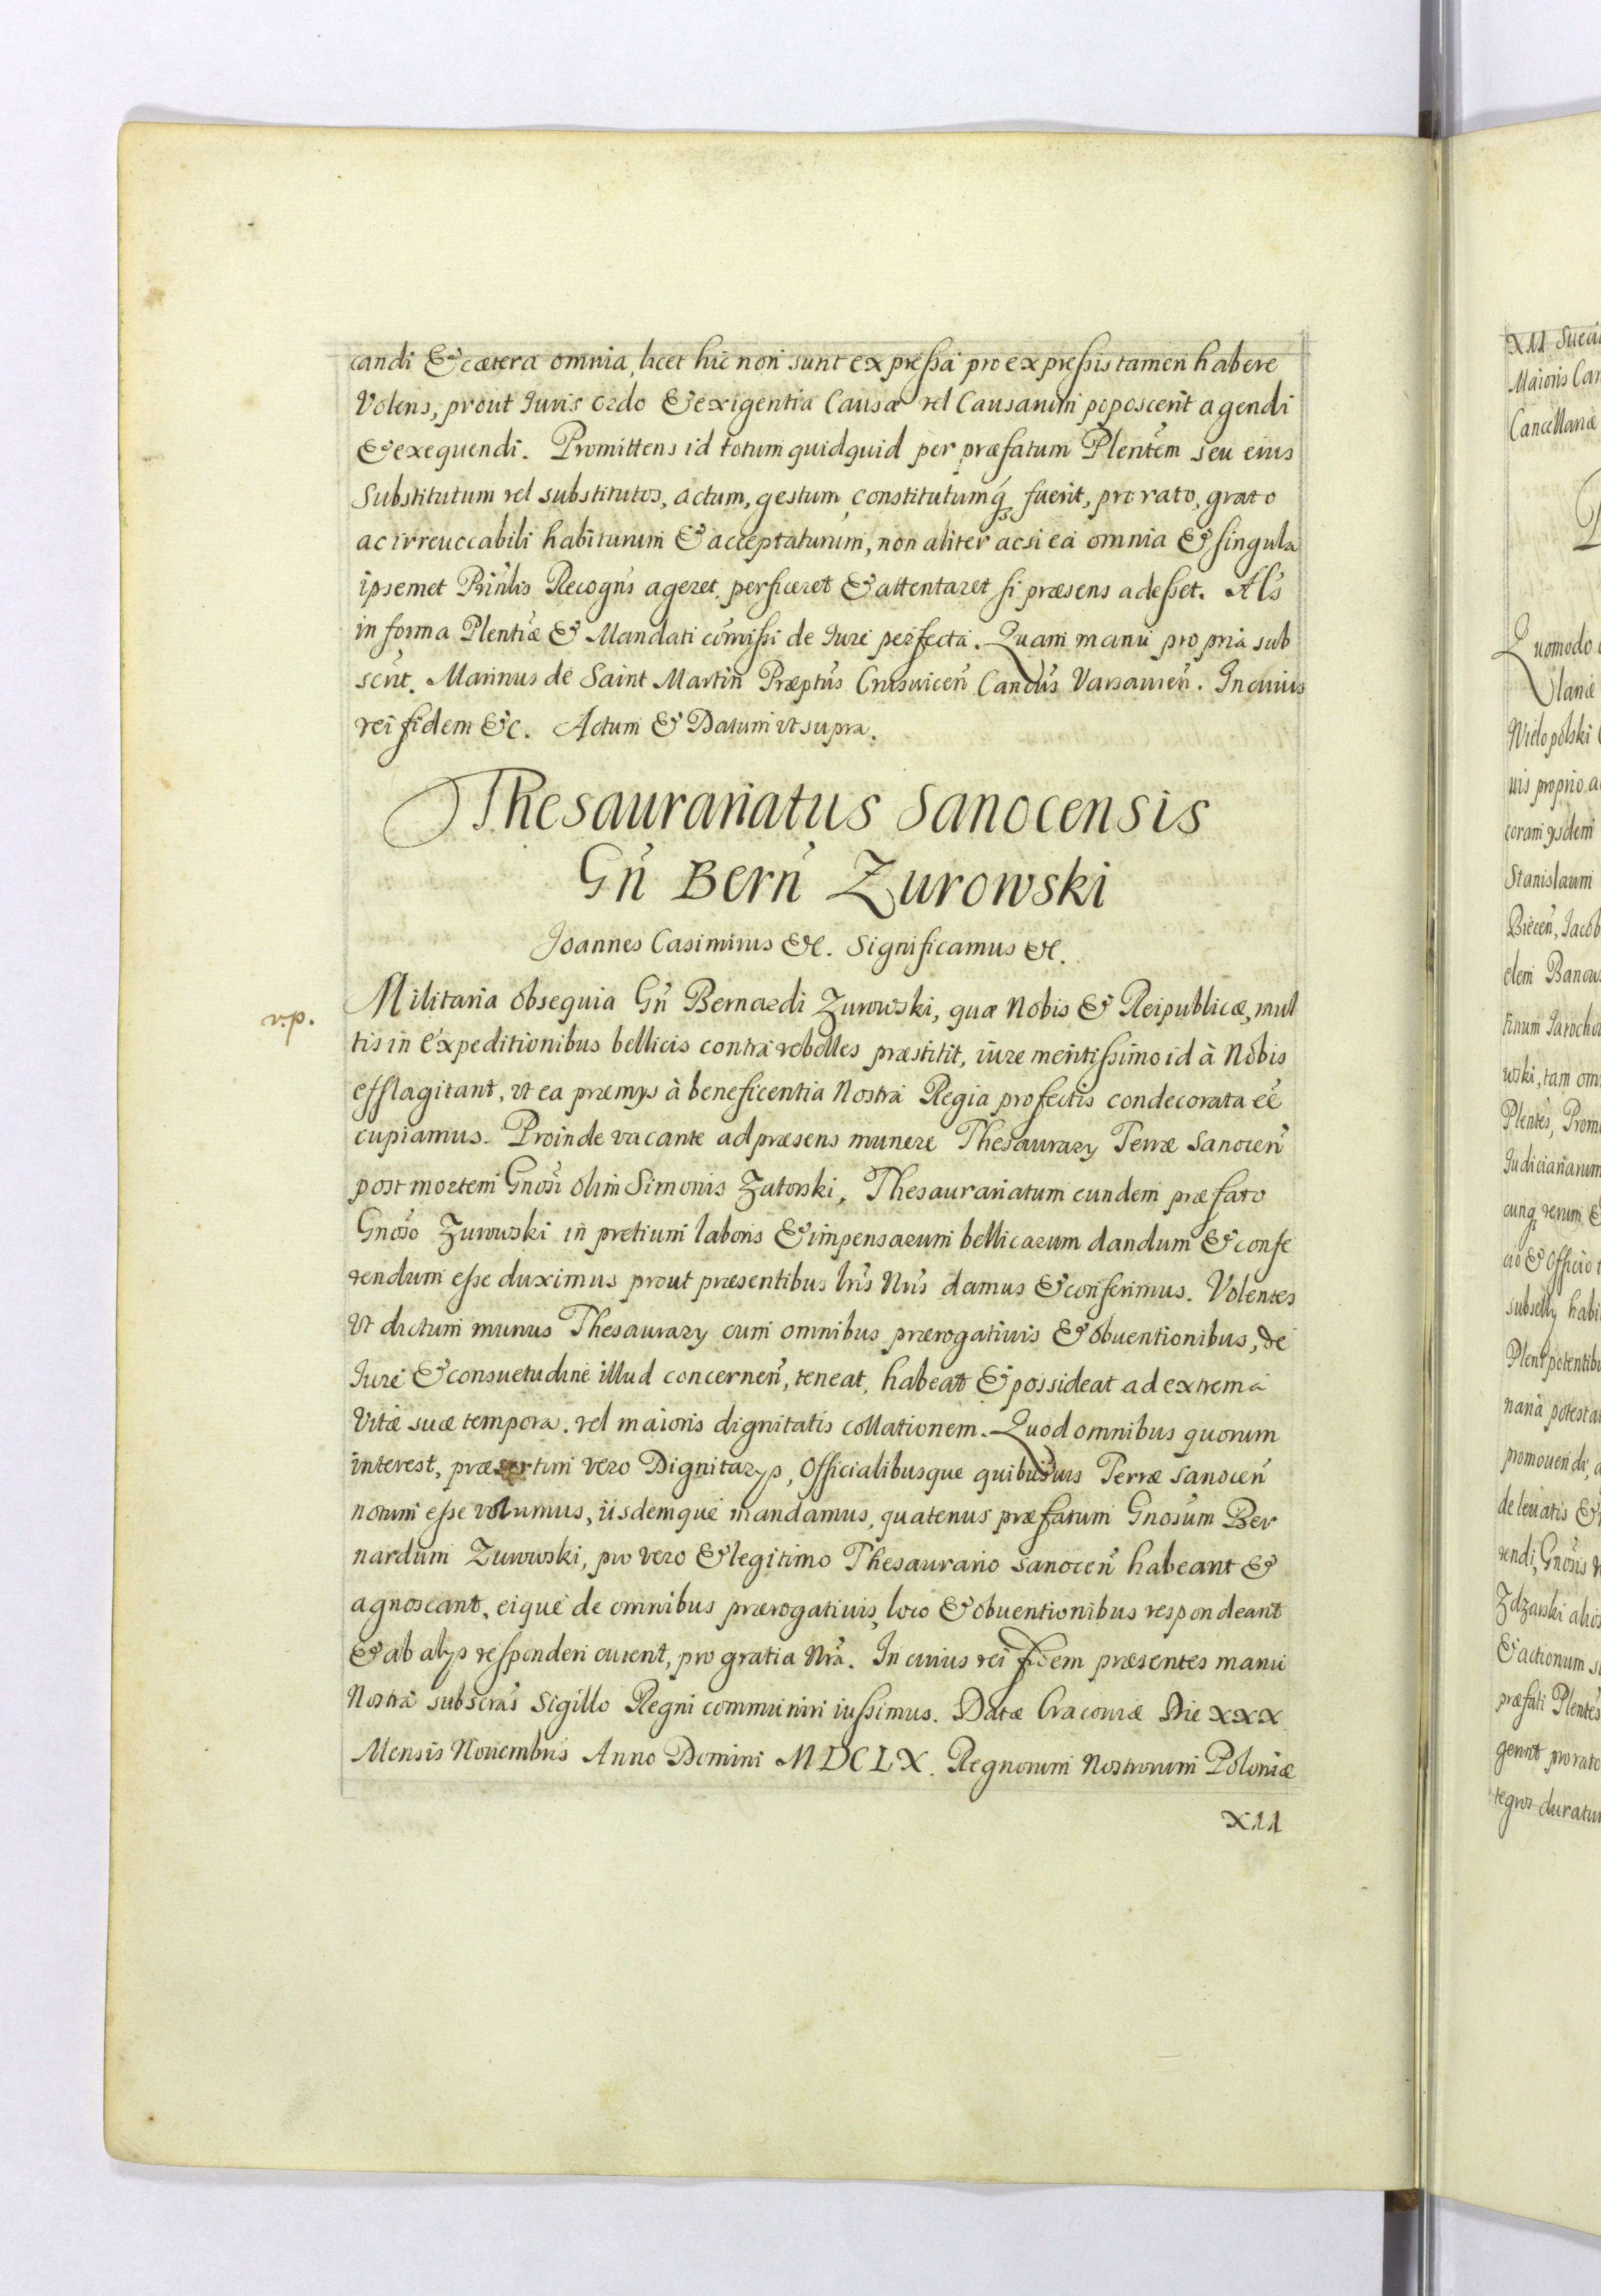 candi & cætera omnia, licet hic non sunt expressa pro expressis tamen habere
Volens, prout Iuris ordo & exigentia Causæ vel Causarum poposcerit agendi
& exequendi. Promittens id totum quidquid per præfatum Plentem seu eius
Substitutum vel substitutos, actum, gestum, constitutumq fuerit, pro rato, grato
ac irreuocabili habiturum & acceptaturum, non aliter acsi ea omnia & singula
ipsemet Prinlis Recogns ageret, perficeret & attentaret si præsens adesset. Als
in forma Plentiæ & Mandati comissi de Iure perfecta. Quam manu propria sub
scrit. Marinus de Saint Martin Præptus Crusuicen Candus Varsauien. In cuius
rei fidem &c. Actum & Datum vt supra.
Thesaurariatus Sanocensis
Gn Bern Zurowski
Joannes Casimirus &c. Significamus &c.
v.p.
Militaria obsequia Gn Bernardi Zurowski, quæ Nobis & Reipublicæ, mul
tis in expeditionibus bellicis contra rebelles præstitit, iure meritissimo id à Nobis
efflagitant, vt ea præmys à beneficentia Nostra Regia profectis condecorata ee
cupiamus. Proinde vacante ad præsens munere Thesaurary Terræ Sanocen
post mortem Gnosi olim Simonis Zatorski, Thesaurariatum eundem præfato
Gnoso Zurowski in pretium laboris & impensarum bellicarum dandum & confe
rendum esse duximus prout præsentibus lris Nris damus & conferimus. Volentes
vt dictum munus Thesaurary cum omnibus prærogatiuis & obuentionibus, de
Iure & consuetudine illud concernen, teneat, habeat & possideat ad extrema
Vitæ suæ tempora. vel maioris dignitatis collationem. Quod omnibus quorum
interest, præsertim vero Dignitarys, Officialibusque quibusuis Terræ Sanocen
notum esse volumus, iisdemque mandamus, quatenus præfatum Gnosum Ber
nardum Zurowski, pro vero & legitimo Thesaurario Sanocen habeant &
agnoscant, eique de omnibus prærogatiuis, loco & obuentionibus respondeant
& ab alys responderi curent, pro gratia Nra. In cuius rei fidem præsentes manu
Nostra subscras Sigillo Regni communiri iussimus. Datæ Cracouiæ Die XXX
Mensis Nouembris Anno Domini MDCLX. Regnorum Nostrorum Poloniæ
XII
XII Sueci
Maioris Can
Cancellariæ
Quomodo
Stanislaum
Biecen, Jacob
Plentes, Prom
Judiciariarum
promouendi,
Zdzarski alios
& actionum
præfati Plentes